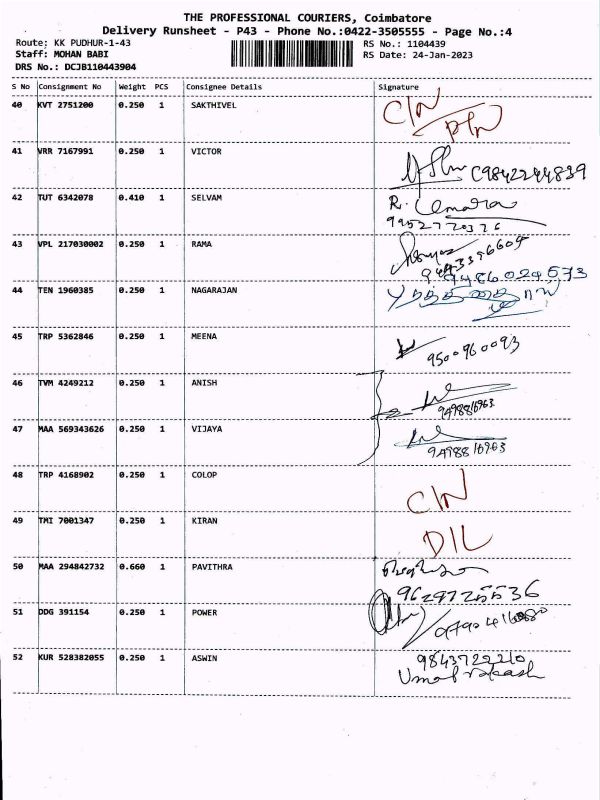 THE PROFESSIONAL COURIERS, Coimbatore
Delivery Runsheet - P43 - Phone No.:0422-3505555 - Page No.:4
Route: KK PUDHUR-1-43
RS No.: 1104439
Staff: MOHAN BABI
RS Date: 24-Jan-2023
DRS No.: DCJB110443904
S No Consignment No Weight PCS Consignee Details Signature
40 KVT 2751200 0.250 1 SAKTHIVEL C/N
41 VRR 7167991 0.250 1 VICTOR C9842244839
42 TUT 6342078 0.410 1 SELVAM R.
9952770376
43 VPL 217030002 0.250 1 RAMA
9486024573
44 TEN 1960385 0.250 1 NAGARAJAN
45 TRP 5362846 0.250 1 MEENA
9500960093
46 TVM 4249212 0.250 1 ANISH
9498816963
47 MAA 569343626 0.250 1 VIJAYA
9498816963
48 TRP 4168902 0.250 1 COLOP C/N
49 TMI 7001347 0.250 1 KIRAN D/L
50 MAA 294842732 0.660 1 PAVITHRA
9629725536
51 DDG 391154 0.250 1 POWER
52 KUR 528382055 0.250 1 ASWIN 9843722210